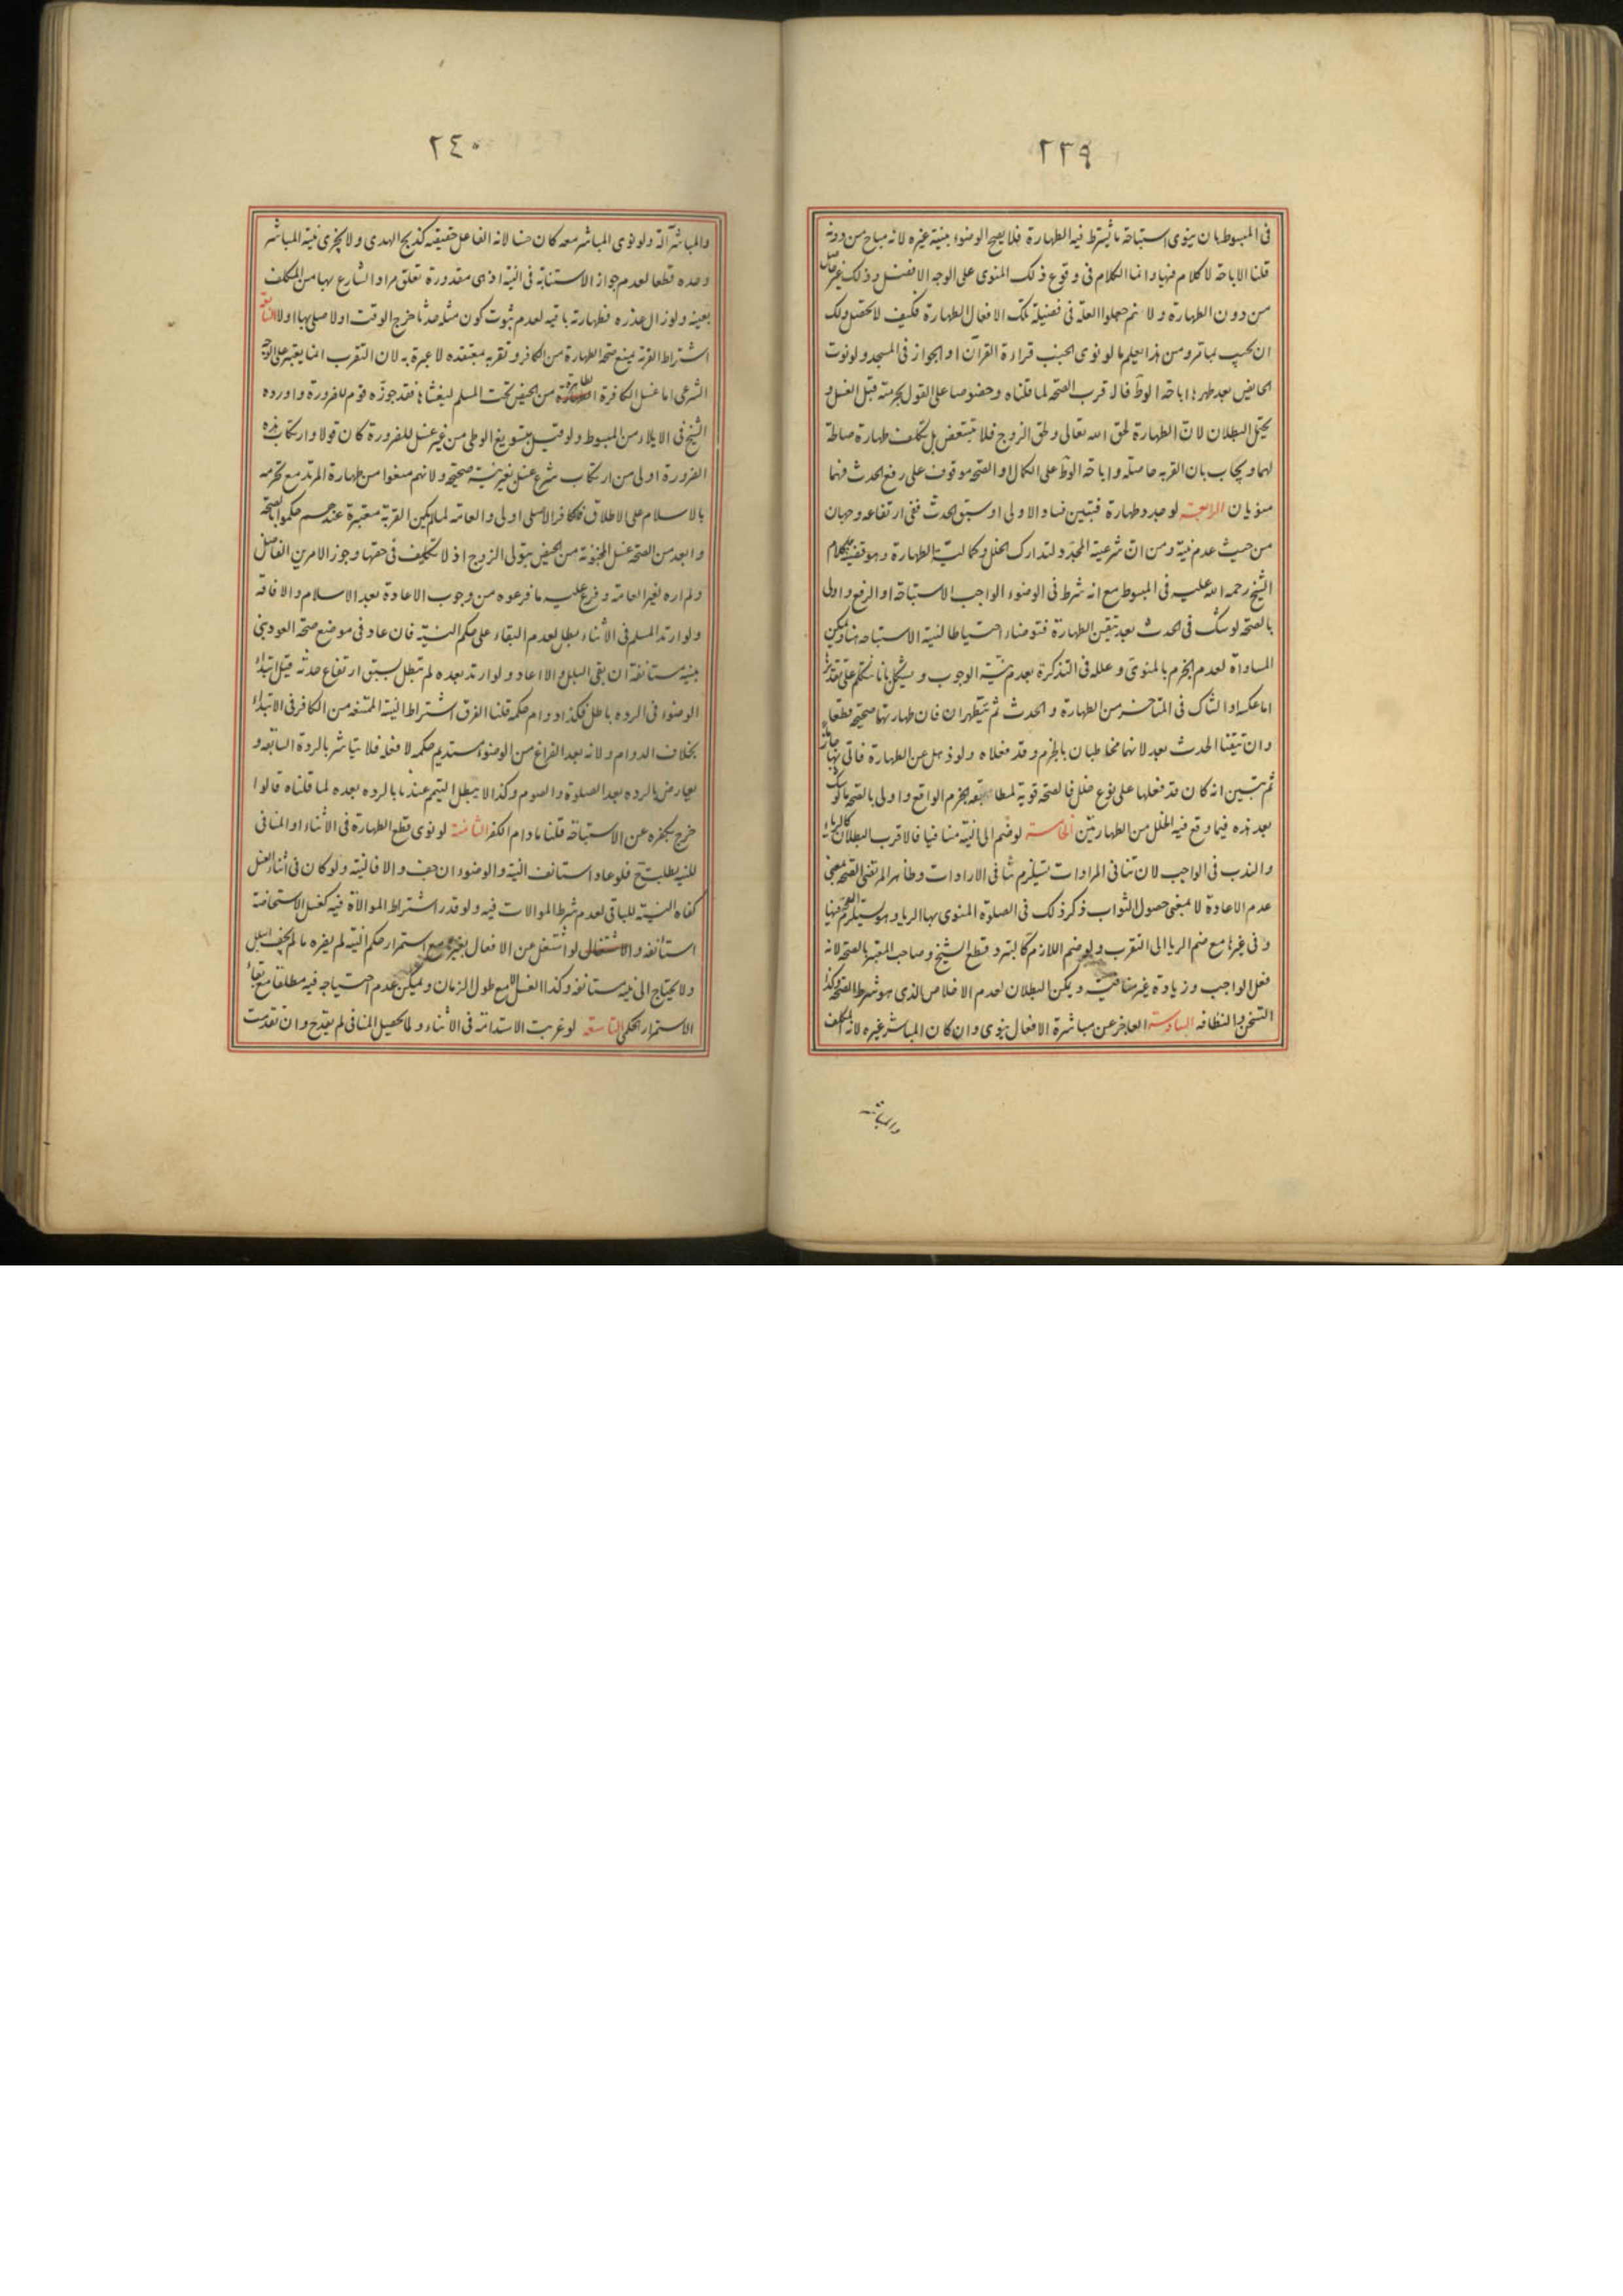 ٢٣٩
فى المبسوط بان ينوى استباحة ما يشترط فيه الطهارة فلا يصح الوضوء بنية غيره لانه مباح من دونه
قلنا الاباحة لا كلام فيها وانما الكلام فى وقوع ذلك المنوى على الوجه الافضل وذلك غير حاصل
من دون الطهارة ولانهم جعلوا العلة فى فضيلة تلك الافعال الطهارة فكيف لا تحصل ولك
ان تجيب بما مر ومن هذا يعلم ما لو نوى الجنب قراءة القرآن او الجواز فى المسجد ولو نوت
الحايض بعد طهرها اباحة الوطؤ فالاقرب الصحة لما قلناه وخصوصا على القول بحرمته قبل الغسل و
يحتمل البطلان لان الطهارة لحق الله تعالى ولحق الزوج فلا تتبعض بل تكلف طهارة صالحة
لهما ويجاب بان القربة حاصلة واباحة الوطؤ على الكمال او الصحة موقوف على رفع الحدث فهما
منويان الرابعة لو جدد طهارة فتبين فساد الاولى او سبق الحدث ففى ارتفاعه وجهان
من حيث عدم نية ومن ان شرعية المجدد لتدارك الخلل وكمالية الطهارة وهو قضية كلام
الشيخ رحمه الله عليه فى المبسوط مع انه شرط فى الوضوء الواجب الاستباحة او الرفع واولى
بالصحة لو شك فى الحدث بعد تيقن الطهارة فتوضاء احتياطا لنية الاستباحه هنا ويمكن
المساواة لعدم الجزم بالمنوى وعلله فى التذكرة بعدم نية الوجوب ويشكل بانا نتكلم على تقديرها
اما عكسه او الشاك فى المتاخر من الطهارة والحدث ثم يتطهران فان طهارتهما صحيحة قطعا
وان تيقنا الحدث بعد لانهما مخاطبان بالجزم وقد فعلاه ولو ذهل عن الطهارة فاتى بها جازما
ثم تبين انه كان قد فعلها على نوع خلل فالصحة قوية لمطابقته الجزم الواقع واولى بالصحة ما لو شك
بعد هذه فيما وقع فيه الخلل من الطهارتين الخامسة لو ضم الى النية منافيا فالاقرب البطلان كالرياء
والندب فى الواجب لان تنافى المرادات يستلزم تنافى الارادات وظاهر المرتضى الصحة بمعنى
عدم الاعادة لا بمعنى حصول الثواب ذكر ذلك فى الصلوة المنوى بها الريا وهو يستلزم الصحة فيها
وفى غيرها مع ضم الريا الى التقرب ولو ضم اللازم كالتبرد قطع الشيخ وصاحب المعتبر بالصحة لانه
فعل الواجب وزيادة غير منافية ويمكن البطلان لعدم الاخلاص الذى هو شرط الصحة وكذا
التسخن والنظافه السادسة العاجز عن مباشرة الافعال ينوى وان كان المباشر غيره لانه المكلف
والمباشر
٢٤٠
والمباشر آلة ولو نوى المباشر معه كان حسنا لانه الفاعل حقيقه كذبح الهدى ولا يجزى نية المباشر
وحده قطعا لعدم جواز الاستنابة فى النية اذ هى مقدورة تعلق مراد الشارع بها من المكلف
بعينه ولو زال عذره فطهارته باقيه لعدم ثبوت كون مثله حدثا خرج الوقت اولا صلى بها اولا السابعة
اشتراط القربة يمنع صحة الطهارة من الكافر وتقربه بمعتقده لا عبرة به لان التقرب انما يعتبر على الوجه
الشرعى اما غسل الكافرة الطاهرة من الحيض تحت المسلم ليغشاها فقد جوزه قوم للضرورة واورده
الشيخ فى الايلاء من المبسوط ولو قيل بتسويغ الوطى من غير غسل للضرورة كان قولا وارتكاب هذه
الضرورة اولى من ارتكاب شرع غسل بغير نية صحيحة ولانهم منعوا من طهارة المرتد مع تحرمه
بالاسلام على الاطلاق فالكافر الاصلى اولى والعامة لما لم يكن القربة معتبرة عندهم حكموا بالصحة
وابعد من الصحة غسل المجنونة من الحيض بتولى الزوج اذ لا تكليف فى حقها وجوز الامرين الفاضل
ولم اره لغير العامة وفرع عليه ما فرعوه من وجوب الاعادة بعد الاسلام والافاقة
ولو ارتد المسلم فى الاثناء بطل لعدم البقاء على حكم النية فان عاد فى موضع صحة العود بنى
بنية مستانفة ان بقى البلل والا اعاد ولو ارتد بعده لم تبطل لسبق ارتفاع حدثه قيل ابتداء
الوضوء فى الرده باطل فكذا دوام حكمه قلنا الفرق اشتراط النية الممتنعة من الكافر فى الابتداء
بخلاف الدوام ولانه بعد الفراغ من الوضوء مستديم حكمه لا فعله فلا يتاثر بالردة السابقه و
يعارض بالرده بعد الصلوة والصوم وكذا لا يبطل التيمم عندنا بالرده بعده لما قلناه قالوا
خرج بكفره عن الاستباحة قلنا مادام الكفر الثامنة لو نوى قطع الطهارة فى الاثناء او المنافى
للنية بطلت ح فلو عاد استانف النية والوضوء ان جف والا فالنية ولو كان فى اثناء الغسل
كفاه النية للباقى لعدم شرط الموالات فيه ولو قدر اشتراط الموالاة فيه كغسل الاستحاضة
استانفه ولو اشتغل عن الافعال بغيرها مع استمرار حكم النية لم يضره ما لم يجف البلل
ولا يحتاج الى نية مستانفه وكذا الغسل الا مع طول الزمان ويمكن عدم احتياجه فيه مطلقا مع بقاء
الاستمرار الحكمى التاسعة لو عزبت الاستدامة فى الاثناء ولما يحصل المنافى لم يقدح وان تقدمت